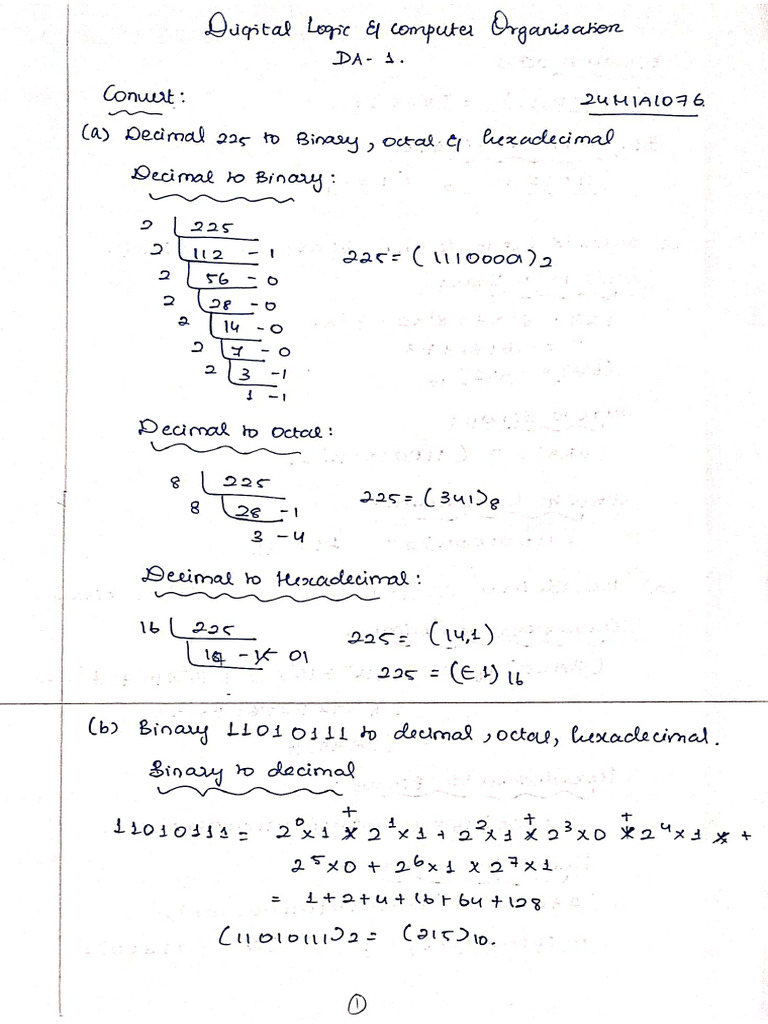 Digital Logic & Computer Organisation
DA- 1.
Convert:
24MIA1076.
(a) Decimal 225 to Binary, octal & hexadecimal
Decimal to Binary:
2 225
2 112 - 1
225 = (11100001)2
2 56 - 0
2 28 - 0
2 14 - 0
2 7 - 0
2 3 - 1
1 - 1
Decimal to Octal:
8 225
225 = (341)8
8 28 - 1
3 - 4
Decimal to Hexadecimal:
16 225
225 = (14,1)
14 - 01
225 = (E1)16
(b) Binary 11010111 to decimal, octal, hexadecimal.
Binary to decimal
11010111 = 2^0 x 1 + 2^1 x 1 + 2^2 x 1 + 2^3 x 0 + 2^4 x 1 +
2^5 x 0 + 2^6 x 1 x 2^7 x 1
= 1 + 2 + 4 + 16 + 64 + 128
(11010111)2 = (215)10.
1